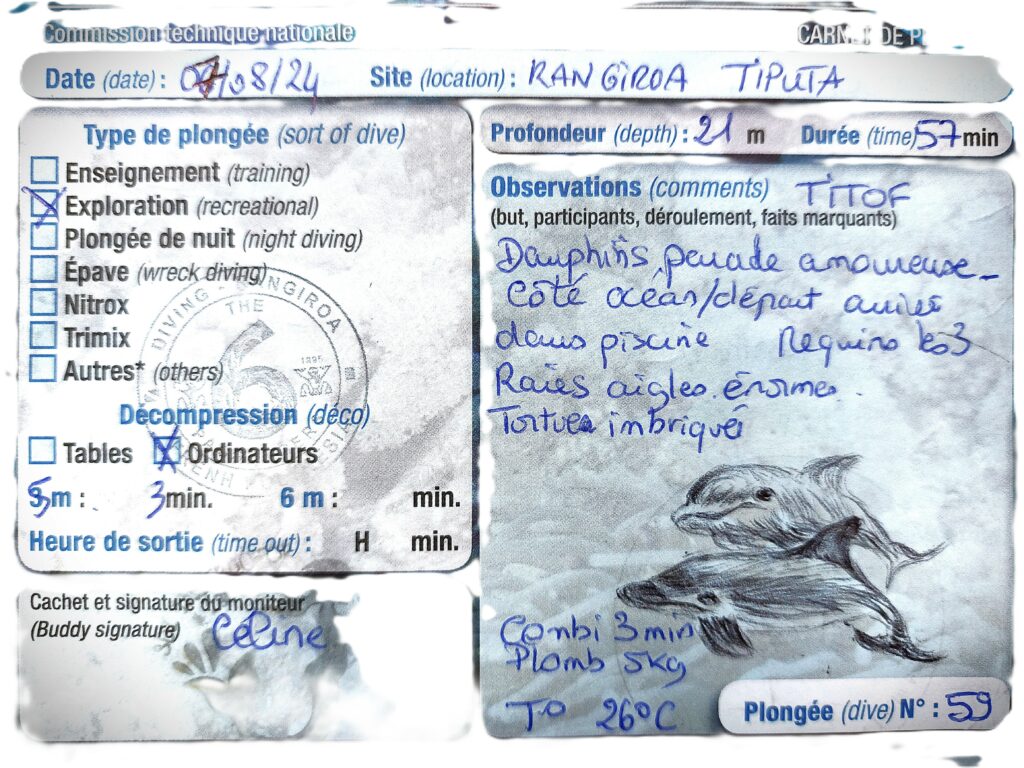 Commission technique nationale CARNET DE P
Date (date) : 07/08/24 Site (location) : RANGIROA TIPUTA
Type de plongée (sort of dive)
Enseignement (training)
Exploration (recreational)
Plongée de nuit (night diving)
Épave (wreck diving)
Nitrox
Trimix
Autres* (others)
DIVING - RANGIROA
THE
6
1895
Décompression (déco)
Tables Ordinateurs
5m : 3min. 6 m : min.
Heure de sortie (time out) : H min.
Cachet et signature du moniteur
(Buddy signature) Céline
Profondeur (depth) : 21 m Durée (time) 57 min
Observations (comments) TITOF
(but, participants, déroulement, faits marquants)
Dauphins parade amoureuse
Côté océan/départ arrivée
dans piscine Requins
Raies aigles énormes
Tortues imbriqué
Combi 3 min
Plomb 5kg
T° 26°C
Plongée (dive) N° : 59